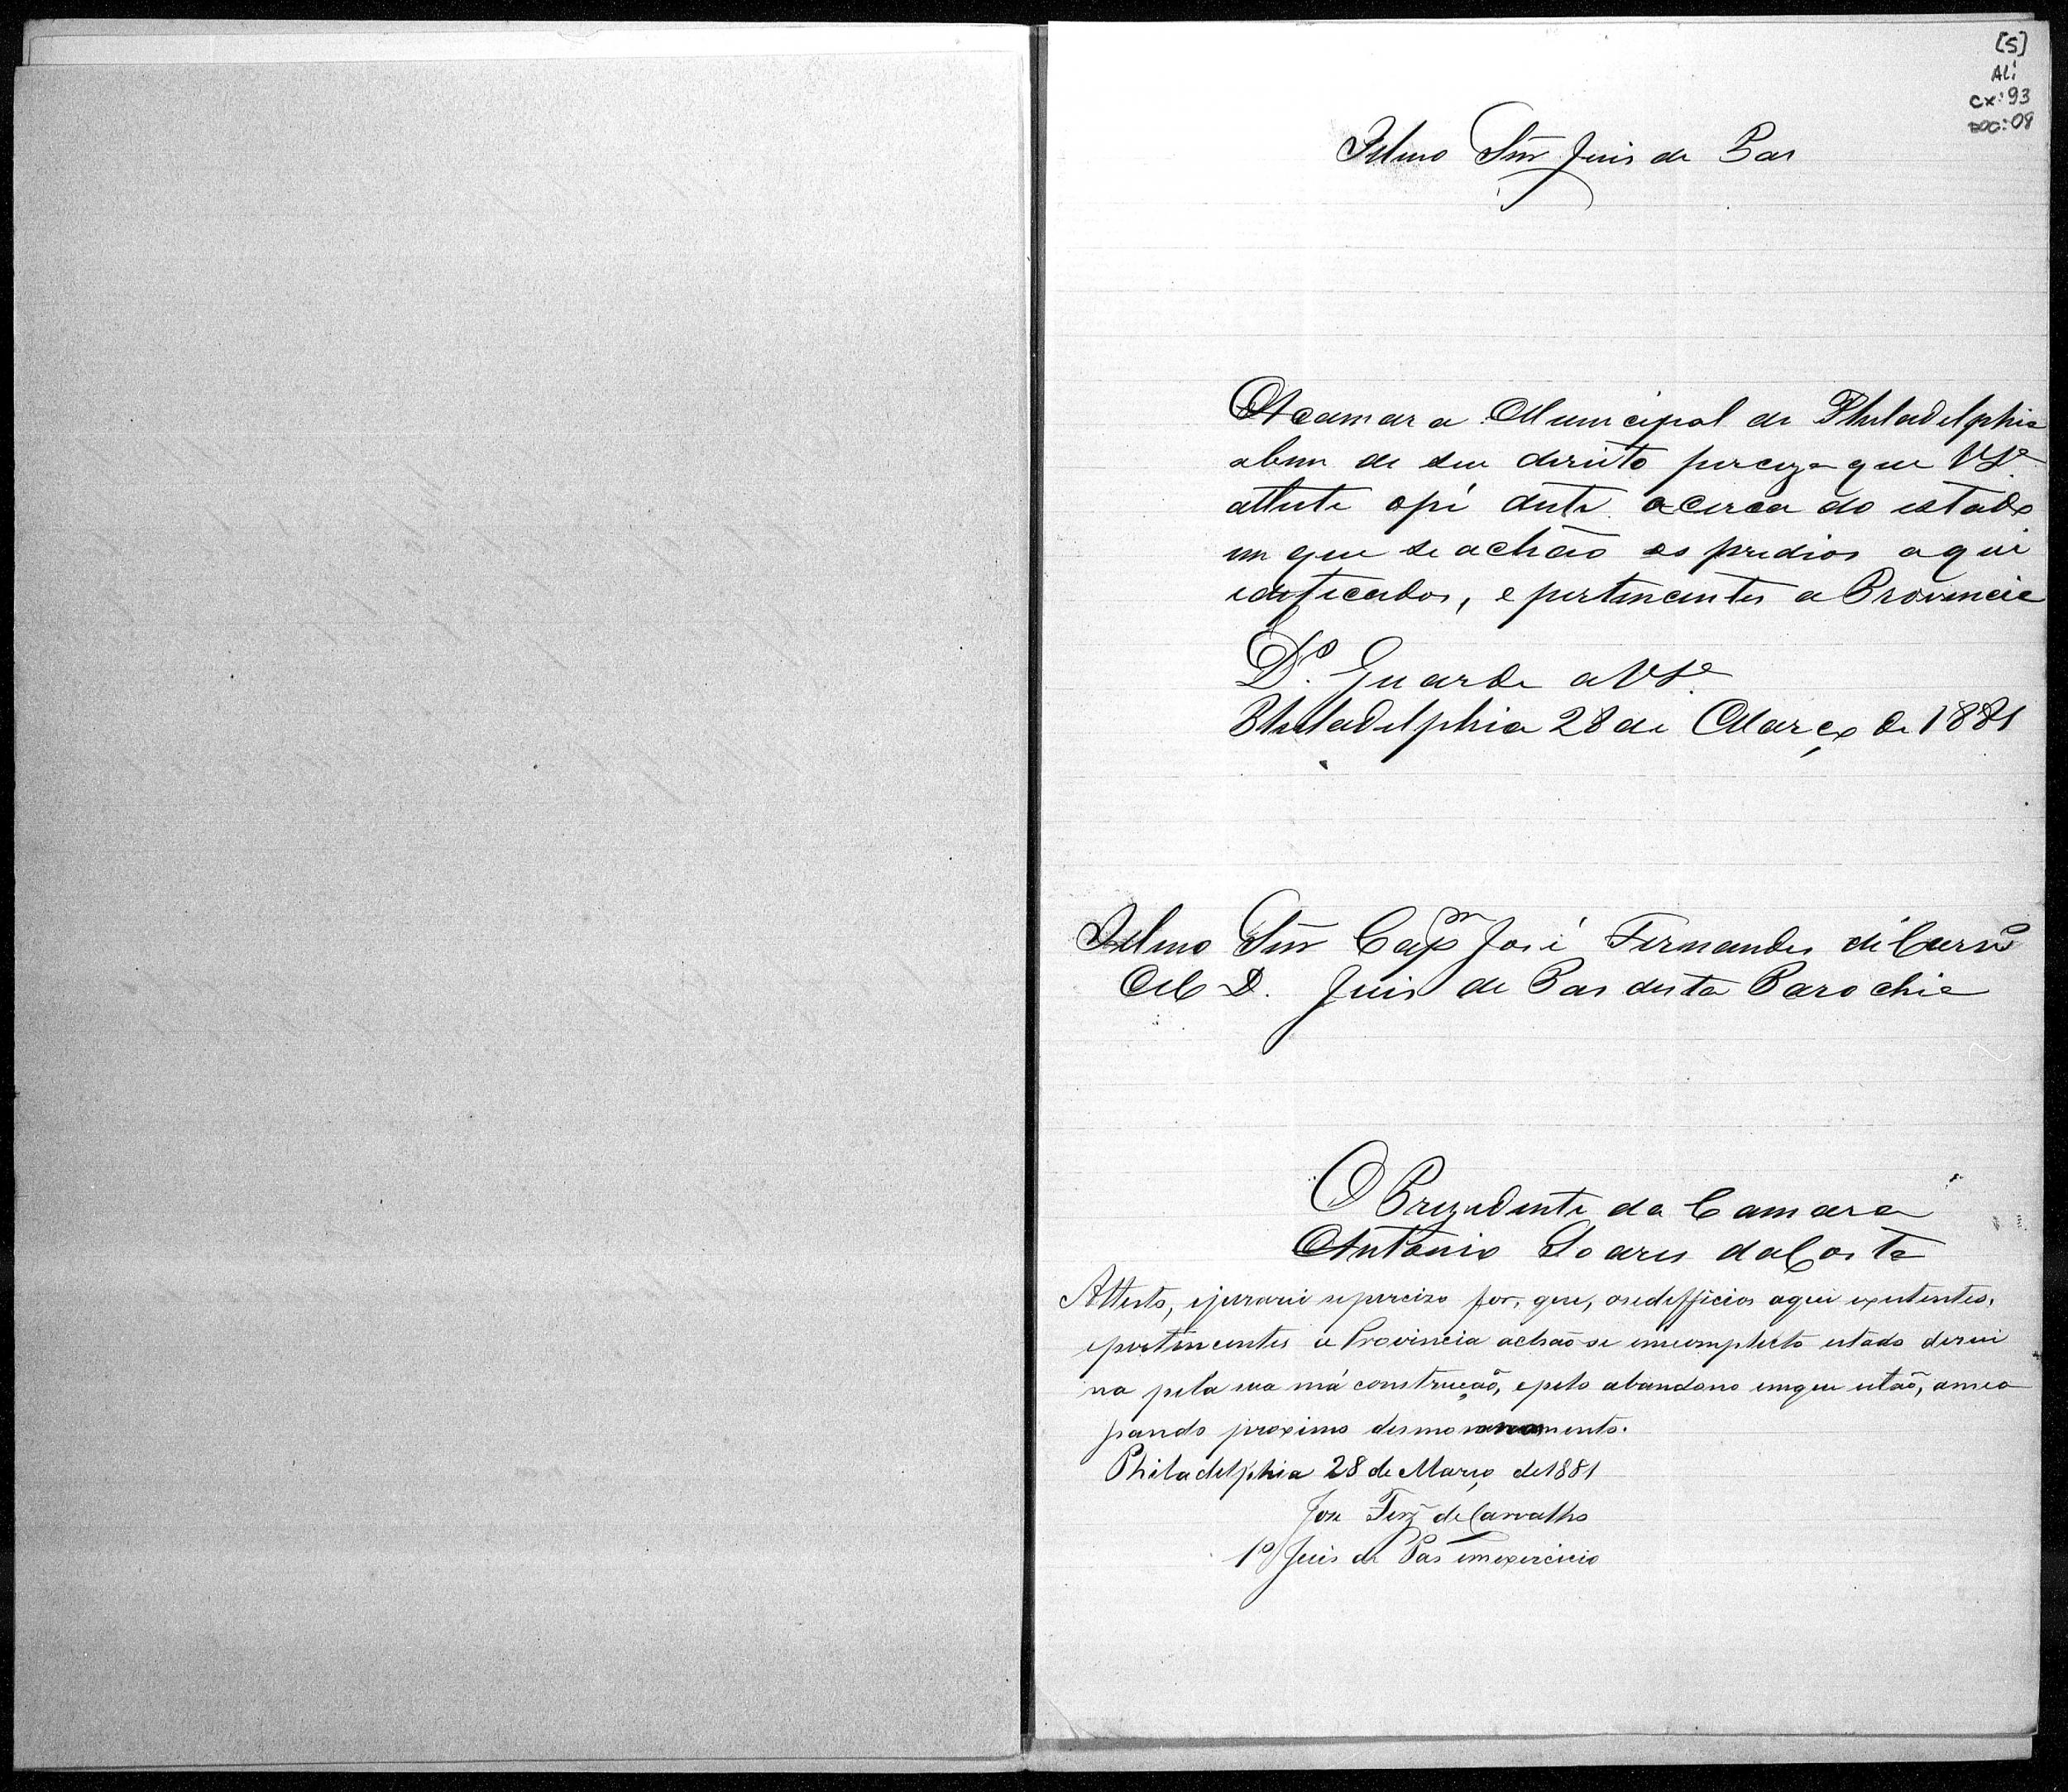 [5]
ALi
cx: 93
DOC: 08
Illmo Snr Juis de Pas
A camara Municipal de Philadelphia
abem de seu direito perciza que VSª
atteste opé deste acerca do estado
em que se achão os predios aqui
edificados, e pertencentes a Provincia
Dº. Guarde a VSª
Philadelphia 28 de Março de 1881
Illmo Snr Capm José Fernandes de Carvº
M D. Juis de Pas desta Parochia
O Prezidente da Camara
Antonio Soares da Costa
Attesto, ejurarei seperciso for, que, osedifficios aqui existentes,
epertencentes a Provincia achaõ-se emcompleto estado derui
na pela sua má construcçaõ, epelo abandono emque estaõ, amea
çando proximo desmoronamento.
Philadelphia 28 de Março de 1881
Jose Ferz de Carvalho
1º Juis de Pas emexercicio